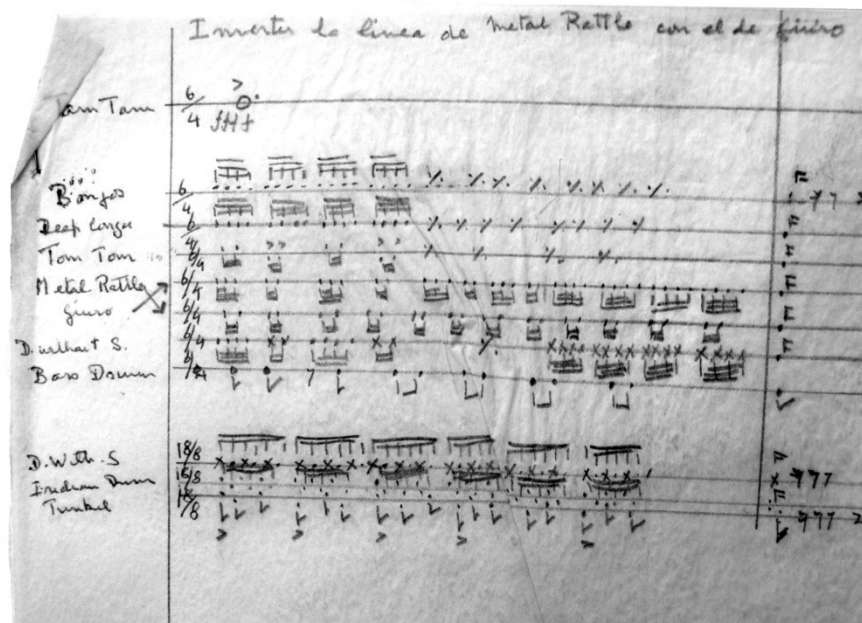 Invertir la linea de Metal Rattle con el de güiro
Tam Tam 6/4 ffff
Bongos 6/4
Deep Conga 6/4
Tom Tom 6/4
Metal Rattle 6/4
güiro 6/4
D. without S. 6/4
Bass Drum 6/4
D. With. S 18/8
Indian Drum 18/8
18/8